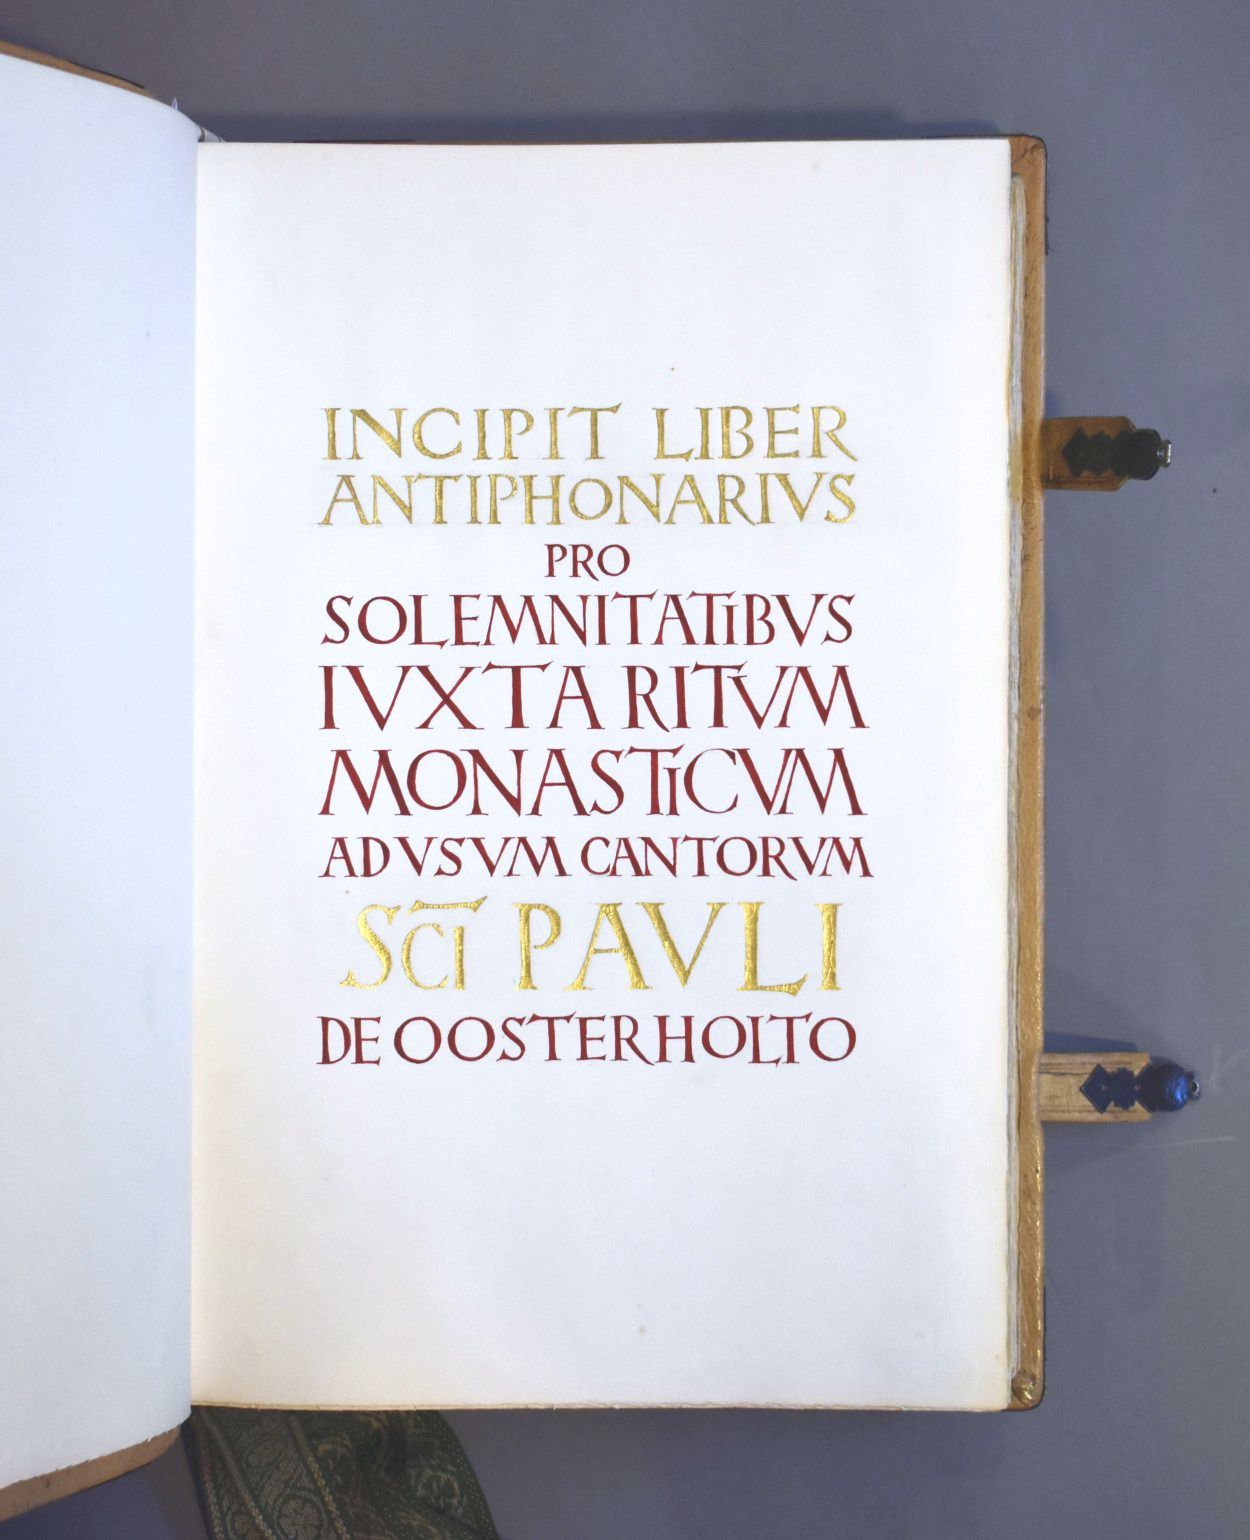 INCIPIT LIBER
ANTIPHONARIVS
PRO
SOLEMNITATiBVS
IVXTA RITVM
MONASTiCVM
AD VSVM CANTORVM
SC̅I PAVLI
DE OOSTERHOLTO